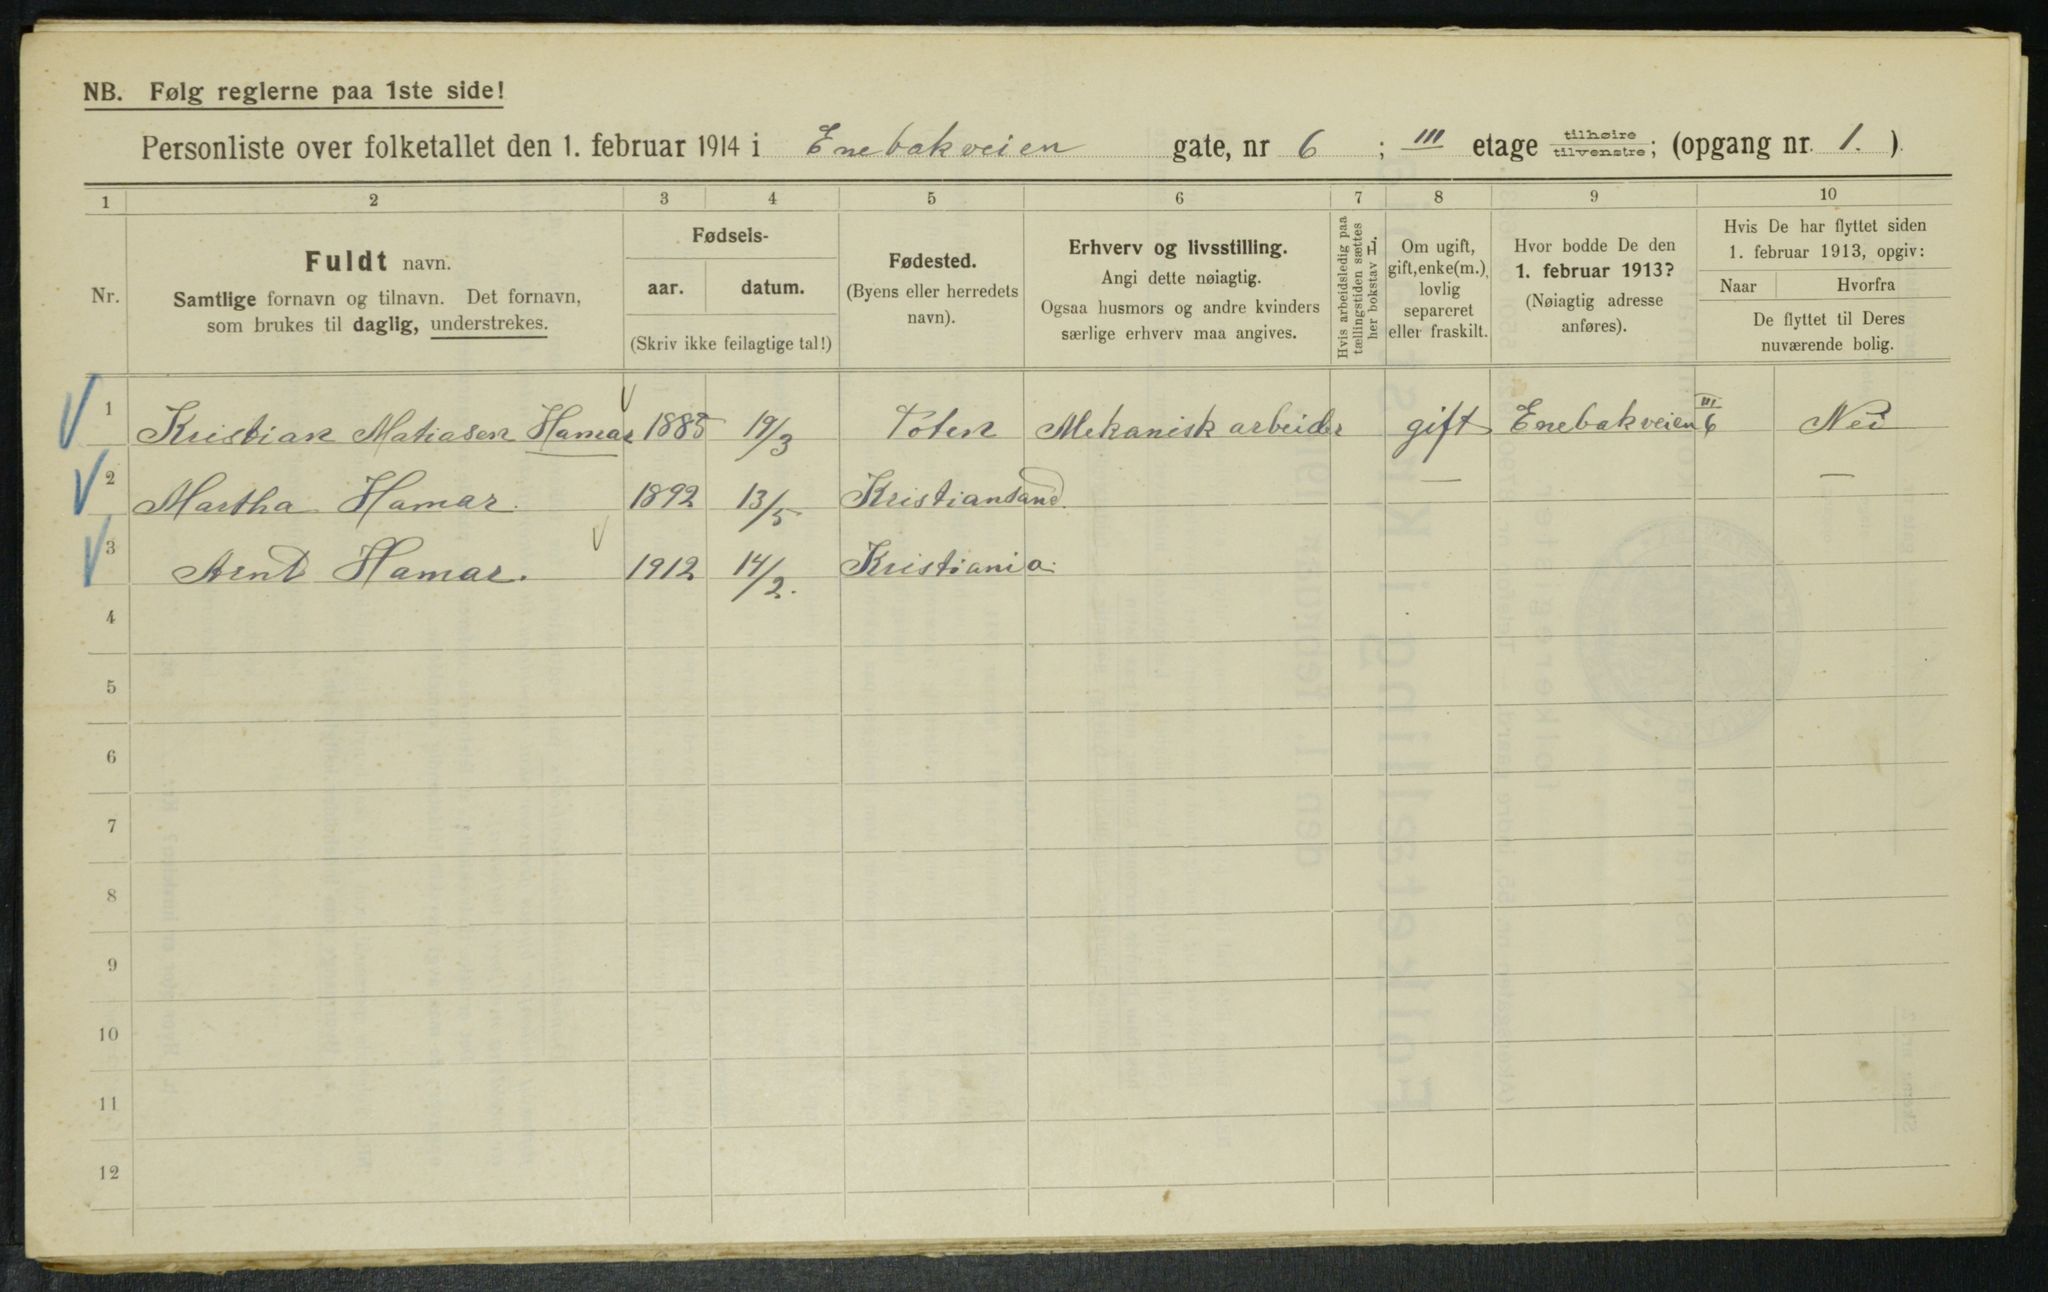 NB. Følg reglerne paa 1ste side!
Personliste over folketallet den 1. februar 1914 i Enebakveien gate, nr 6 ; III etage tilhøire tilvenstre; (opgang nr. 1. )
1 2 3 4 5 6 7 8 9 10
Nr.
Fuldt navn.
Samtlige fornavn og tilnavn. Det fornavn,
som brukes til daglig, understrekes.
Fødsels-
aar. datum.
(Skriv ikke feilagtige tal!)
Fødested.
(Byens eller herredets
navn).
Erhverv og livsstilling.
Angi dette nøiagtig.
Ogsaa husmors og andre kvinders
særlige erhverv maa angives.
Hvis arbeidsledig paa
tællingstiden sættes
her bokstav L.
Om ugift,
gift, enke(m.),
lovlig
separeret
eller fraskilt.
Hvor bodde De den
1. februar 1913?
(Nøiagtig adresse
anføres).
Hvis De har flyttet siden
1. februar 1913, opgiv:
Naar Hvorfra
De flyttet til Deres
nuværende bolig.
1 Kristian Matiasen Hamar 1885 19/3 Toten Mekanisk arbeider gift Enebakveien 6 III Nei
2 Martha Hamar. 1892 13/5 Kristiansand. — —
3 Arnt Hamar. 1912 14/2. Kristiania.
4
5
6
7
8
9
10
11
12